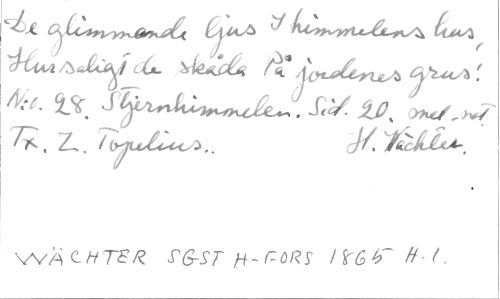 De glimmande ljus I himmelens hus,
Hur saligt de skåda På jordenes grus!
N:o. 28. Stjernhimmelen. Sid. 20. mel. not.
Tx. Z. Topelius.. H. Wächter.
WÄCHTER SGST H-FORS 1865 H.1.